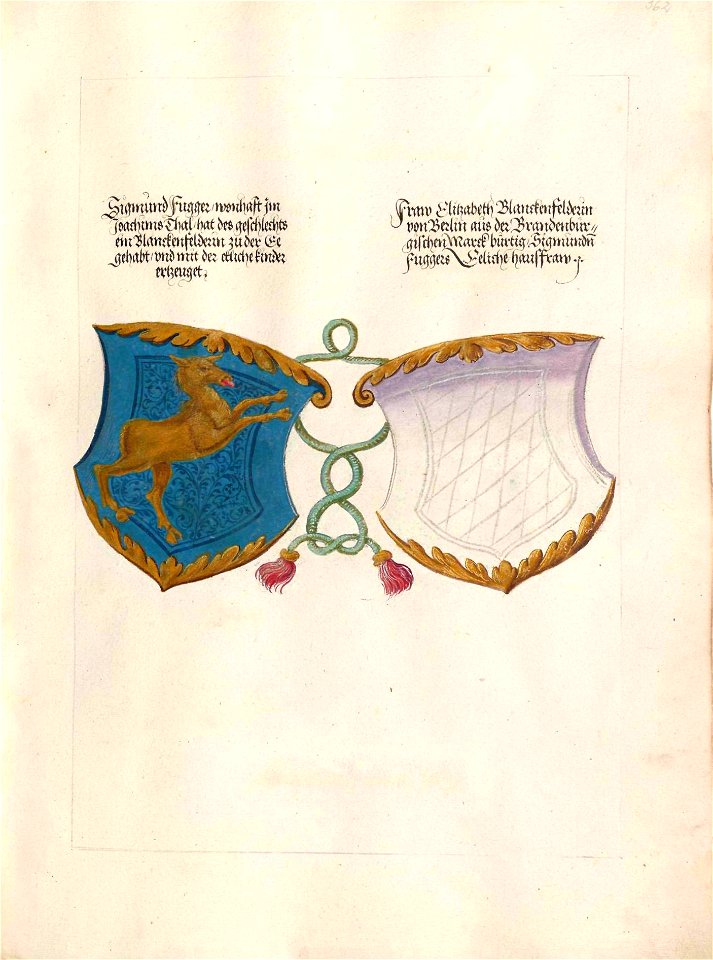 362
Sigmund Fugger wonhafft jm
Joachims Thal, hat des geschlechts
ein Blanckenfelderin zu der Ee
gehabt, vnd mit der etliche kinder
ertzeuget.
Fraw Elizabeth Blanckenfelderin
von Berlin aus der Brandenbur=
gischen Marck bürtig, Sigmundn
Fuggers Eeliche hausfraw.